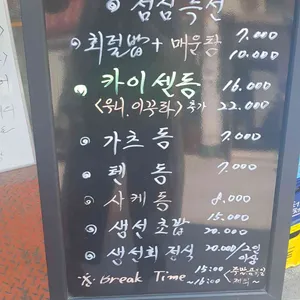 점심특선
회덮밥 + 매운탕 7.000
10.000
카이센동 16.000
<우니.이꾸라> 추가 22.000
가츠동 7.000
텐동 7.000
사케동 8.000
생선초밥 15.000
20.000
생선회정식 20.000/2인 이상
※. Break Time 15:00 ~16:00